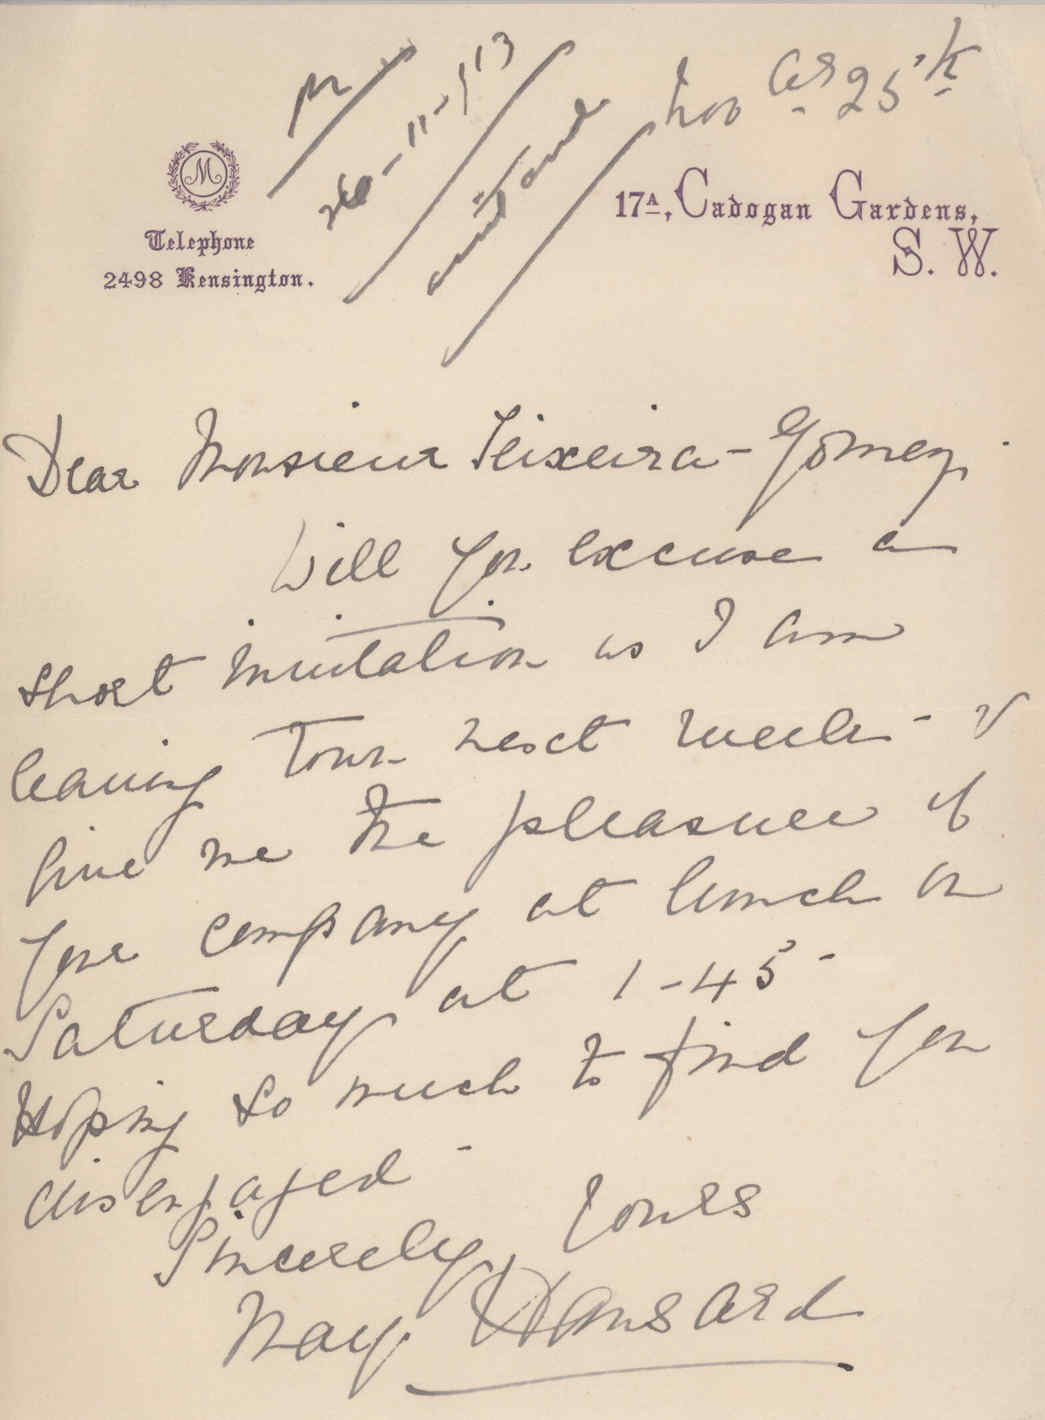 Nov 25th
M
Telephone
2498 Kensington.
17A, Cadogan Gardens,
S. W.
26-11-913
Dear Monsieur Teixeira-Gomez
Will you excuse a
short invitation as I am
leaving Town next week - &
give me the pleasure of
your company at lunch on
Saturday at 1-45-
Hoping so much to find you
disengaged -
Yours
Sincerely
May Hansard